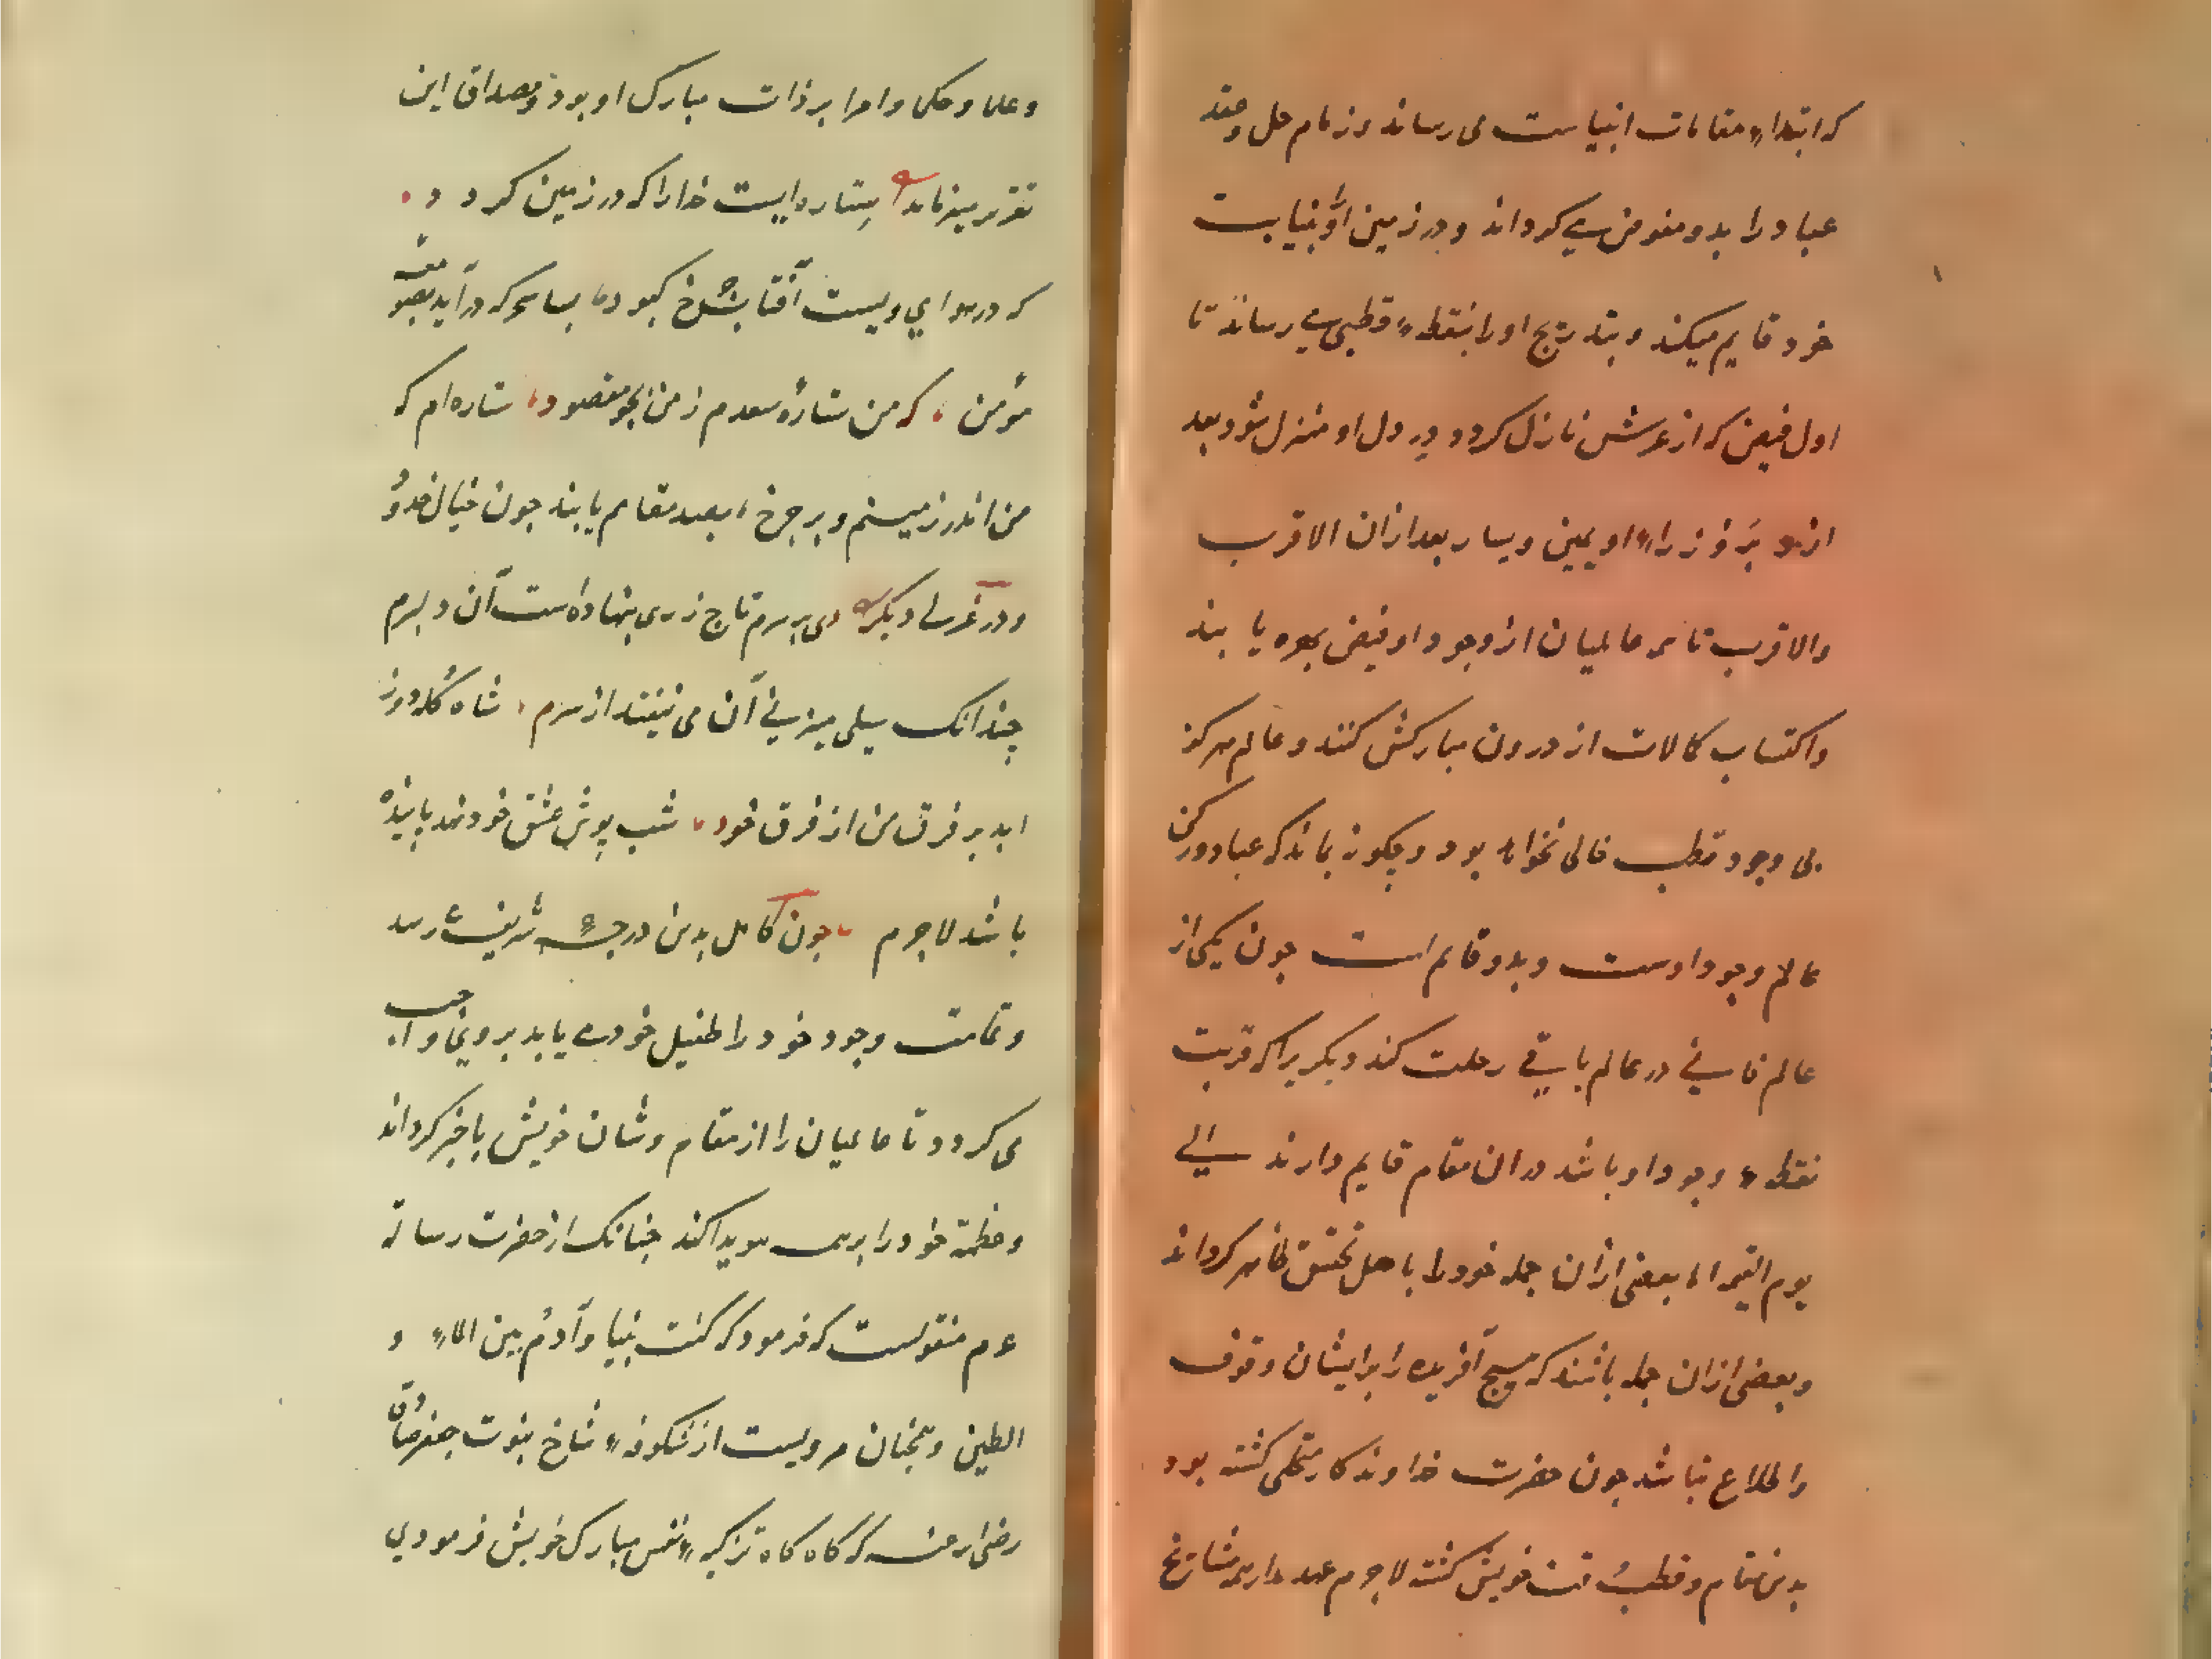 که ابتداء مقامات انبیاست می رساند و زمام حل و عقد
عباد را بدو مفوض می کرداند و در زمین او را بنیابت
خود قایم میکند و بتدریج او را بنقطهٔ قطبی می رساند تا
اول فیض که از عرش نازل کردد در دل او منزل شود بعد
ازو بر وزراء او یمین و یسار بعد ازان الاقرب
والاقرب تا همه عالمیان از وجود او فیض بهره یابند
واکتساب کمالات از درون مبارکش کنند و عالم هرکز
بی وجود قطب خالی نخواهد بود و چکونه بماند که عباد و رکن
عالم وجود اوست و بدو قایم است جون یکی از
عالم فانی در عالم باقی رحلت کند دیکریرا که قریب
نقطهٔ وجود او باشد دران مقام قایم دارند الی
یوم القیمه اما بعضی ازان جمله خود را باهل تحقیق ظاهر کرداند
وبعضی ازان جمله باشند که هیچ آفریده را بر ایشان وقوف
واطلاع نباشد جون حضرت خداوندکار متحلی کشته بود
بدین مقام و قطب وقت خویش کشته لاجرم مدار همه مشایخ
وعلما وحکما وامرا بر ذات مبارک او بود ومصداق این
تقریر میفرماید ستاره ایست خدا را که در زمین کردد
که در هوای ویست آفتاب و چرخ کبود بسا سحر که درآید بصومعه
مؤمن که من ستارهٔ سعدم ز من بجو مقصود ستاره ام که
من اندر زمینم و بر چرخ بصد مقامم یابند جون خیال خدود
ودر غزلی دیکر دی بر سرم تاج زری بنهاده است آن دلبرم
چندانک سیلی میزنی آن می نیفتد از سرم شاه کله دوز
ابد بر فرق من از فرق خود شب پوش عشق خود نهد پاینده
باشد لاجرم جون کامل بدین درجهٔ شریف رسد
وتمامت وجود خود را طفیل خود می یابد برو نیز واجب
می کردد تا عالمیان را از مقام وشان خویش باخبر کرداند
وعظمة خود را بر همه هویدا کند جنانک از حضرت رسالة
عم منقولست که فرمود که کنت نبیا وآدم بین الماء و
الطین وهمچنان مرویست از شکوفهٔ شاخ نبوت جعفر صادق
رضی الله عنه که کاه کاه تزکیهٔ نفس مبارک خویش فرمودی